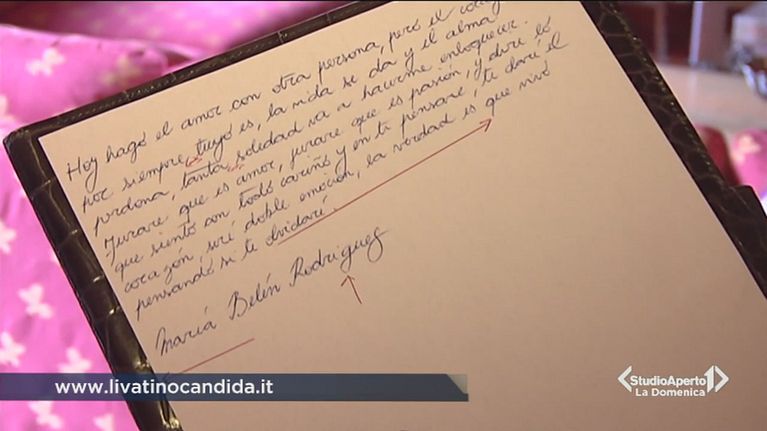 Hoy hago el amor con otra persona, però el
por siempre tuyo es, la vida se da y el alma
perdona, tanta soledad va a hacerme enloquecer.
Jurare que es amor, jurare que es pasión, y dire lo
que siento con todo cariño y en ti pensare, te daré el
corazón, seré doble emoción, la verdad es que vivo
pensando si te olvidaré.
Mariá Belén Rodriguez
www.livatinocandida.it
StudioAperto
La Domenica